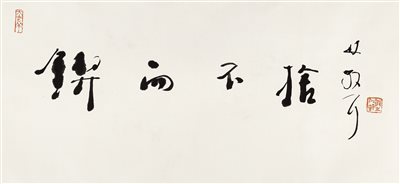 鍥而不捨
林散耳